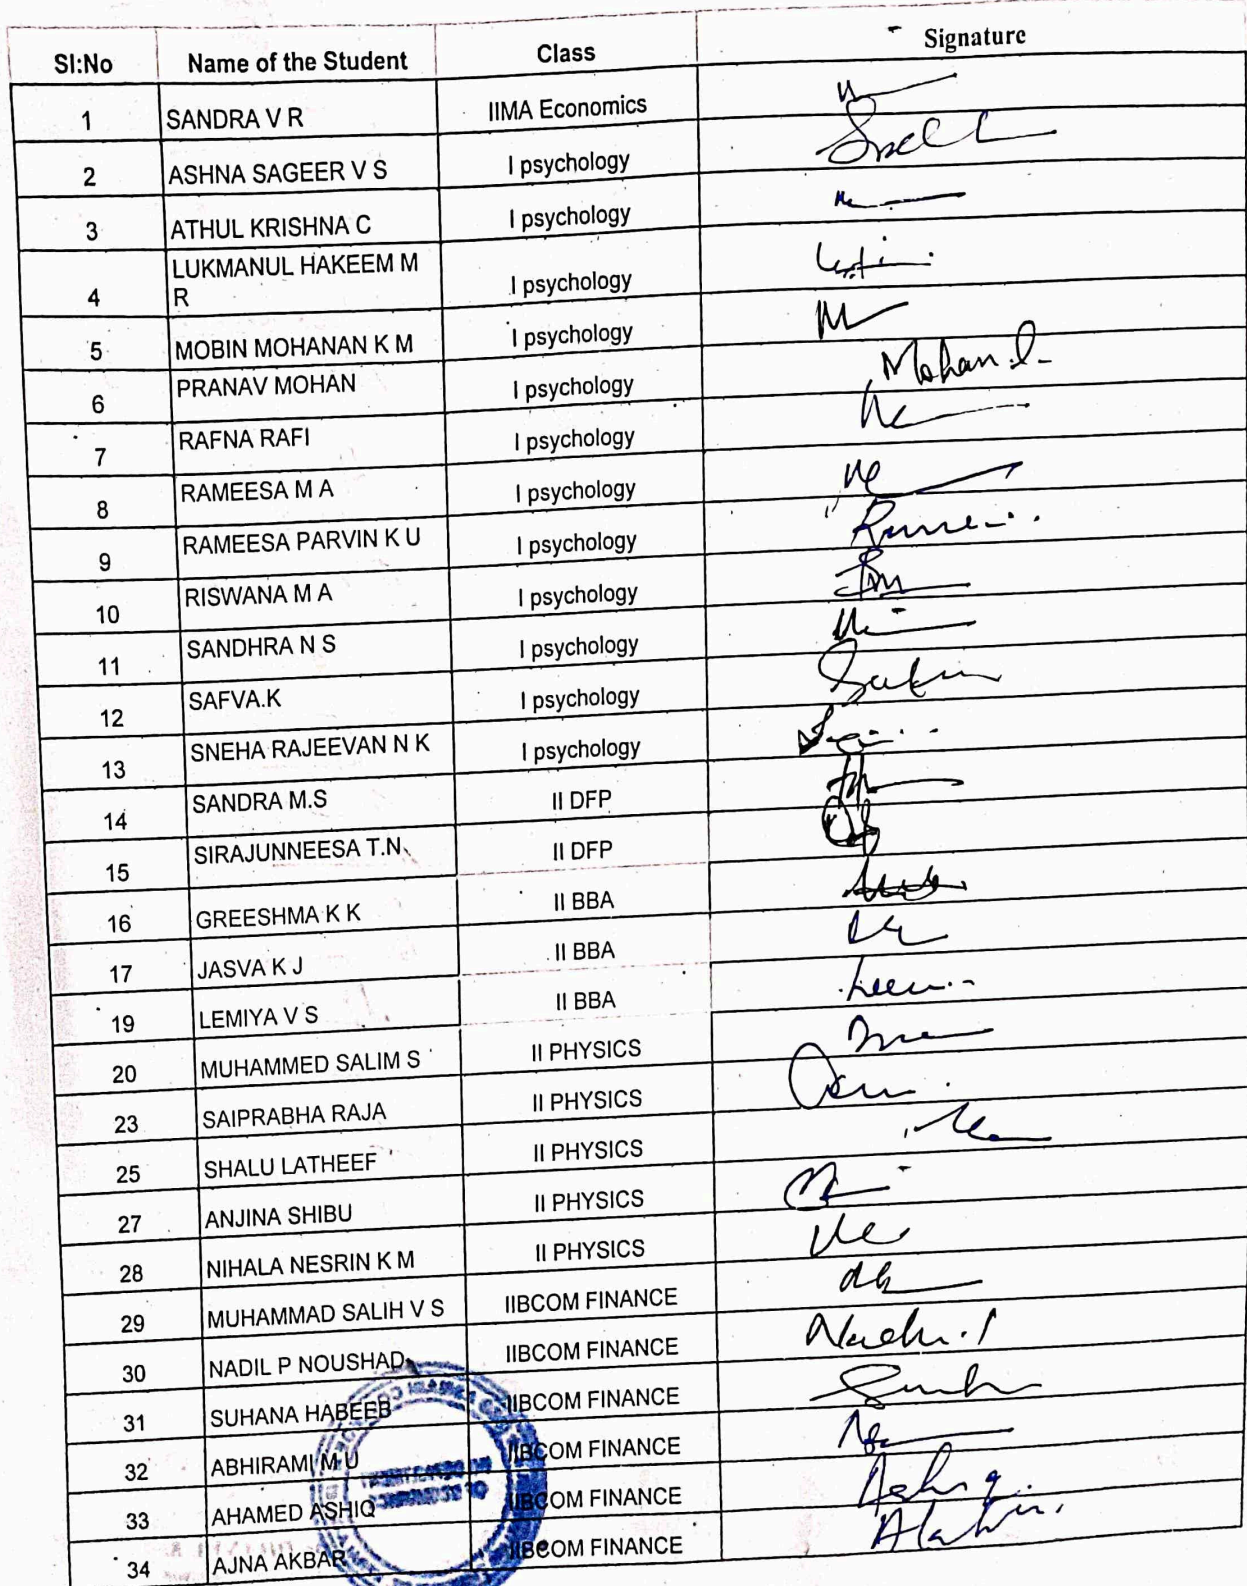 Sl:No Name of the Student Class Signature
1 SANDRA V R IIMA Economics
2 ASHNA SAGEER V S I psychology
3 ATHUL KRISHNA C I psychology
LUKMANUL HAKEEM M
4 R I psychology
5 MOBIN MOHANAN K M I psychology
6 PRANAV MOHAN I psychology Mohan
7 RAFNA RAFI I psychology
8 RAMEESA M A I psychology
9 RAMEESA PARVIN K U I psychology
10 RISWANA M A I psychology
11 SANDHRA N S I psychology
12 SAFVA.K I psychology
13 SNEHA RAJEEVAN N K I psychology
14 SANDRA M.S II DFP
15 SIRAJUNNEESA T.N II DFP
16 GREESHMA K K II BBA
17 JASVA K J II BBA
19 LEMIYA V S II BBA
20 MUHAMMED SALIM S II PHYSICS
23 SAIPRABHA RAJA II PHYSICS
25 SHALU LATHEEF II PHYSICS
27 ANJINA SHIBU II PHYSICS
28 NIHALA NESRIN K M II PHYSICS
29 MUHAMMAD SALIH V S IIBCOM FINANCE
30 NADIL P NOUSHAD IIBCOM FINANCE
31 SUHANA HABEEB IIBCOM FINANCE
32 ABHIRAMI M U IIBCOM FINANCE
33 AHAMED ASHIQ IIBCOM FINANCE
34 AJNA AKBAR IIBCOM FINANCE